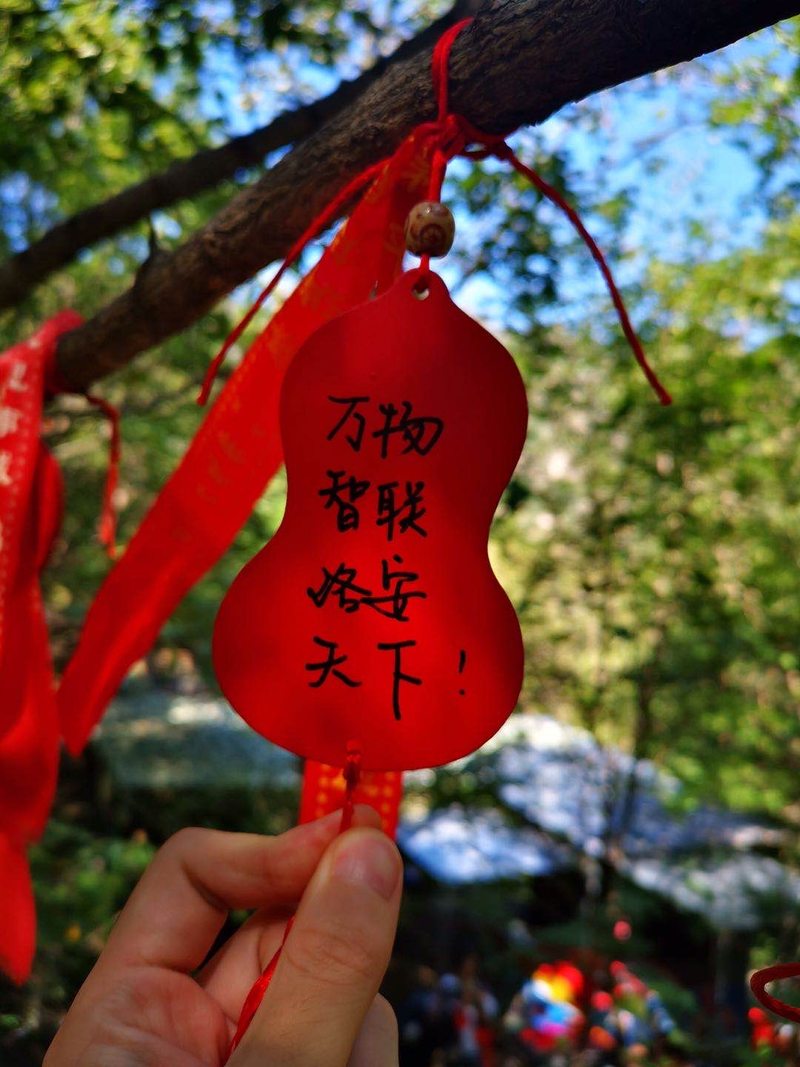 万物
智联
洛安
天下！